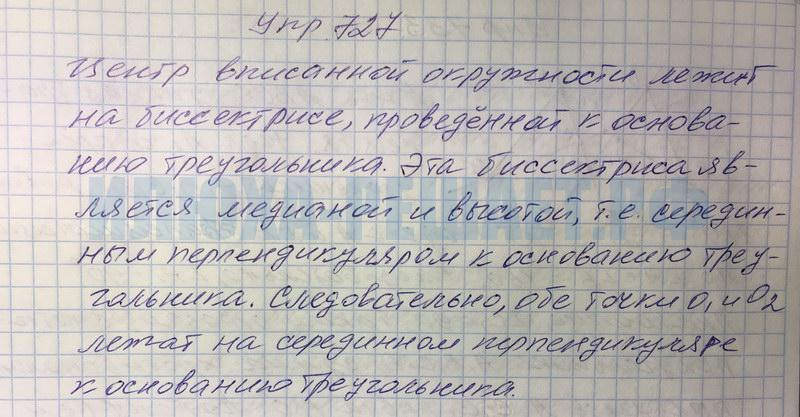 Упр. 727
Центр вписанной окружности лежит
на биссектрисе, проведённой к основа-
нию треугольника. Эта биссектриса яв-
ляется медианой и высотой, т.е. середин-
ным перпендикуляром к основанию треу-
гольника. Следовательно, обе точки O₁ и O₂
лежат на серединном перпендикуляре
к основанию треугольника.
ИЛЮХА-РЕШАЕТ.РФ